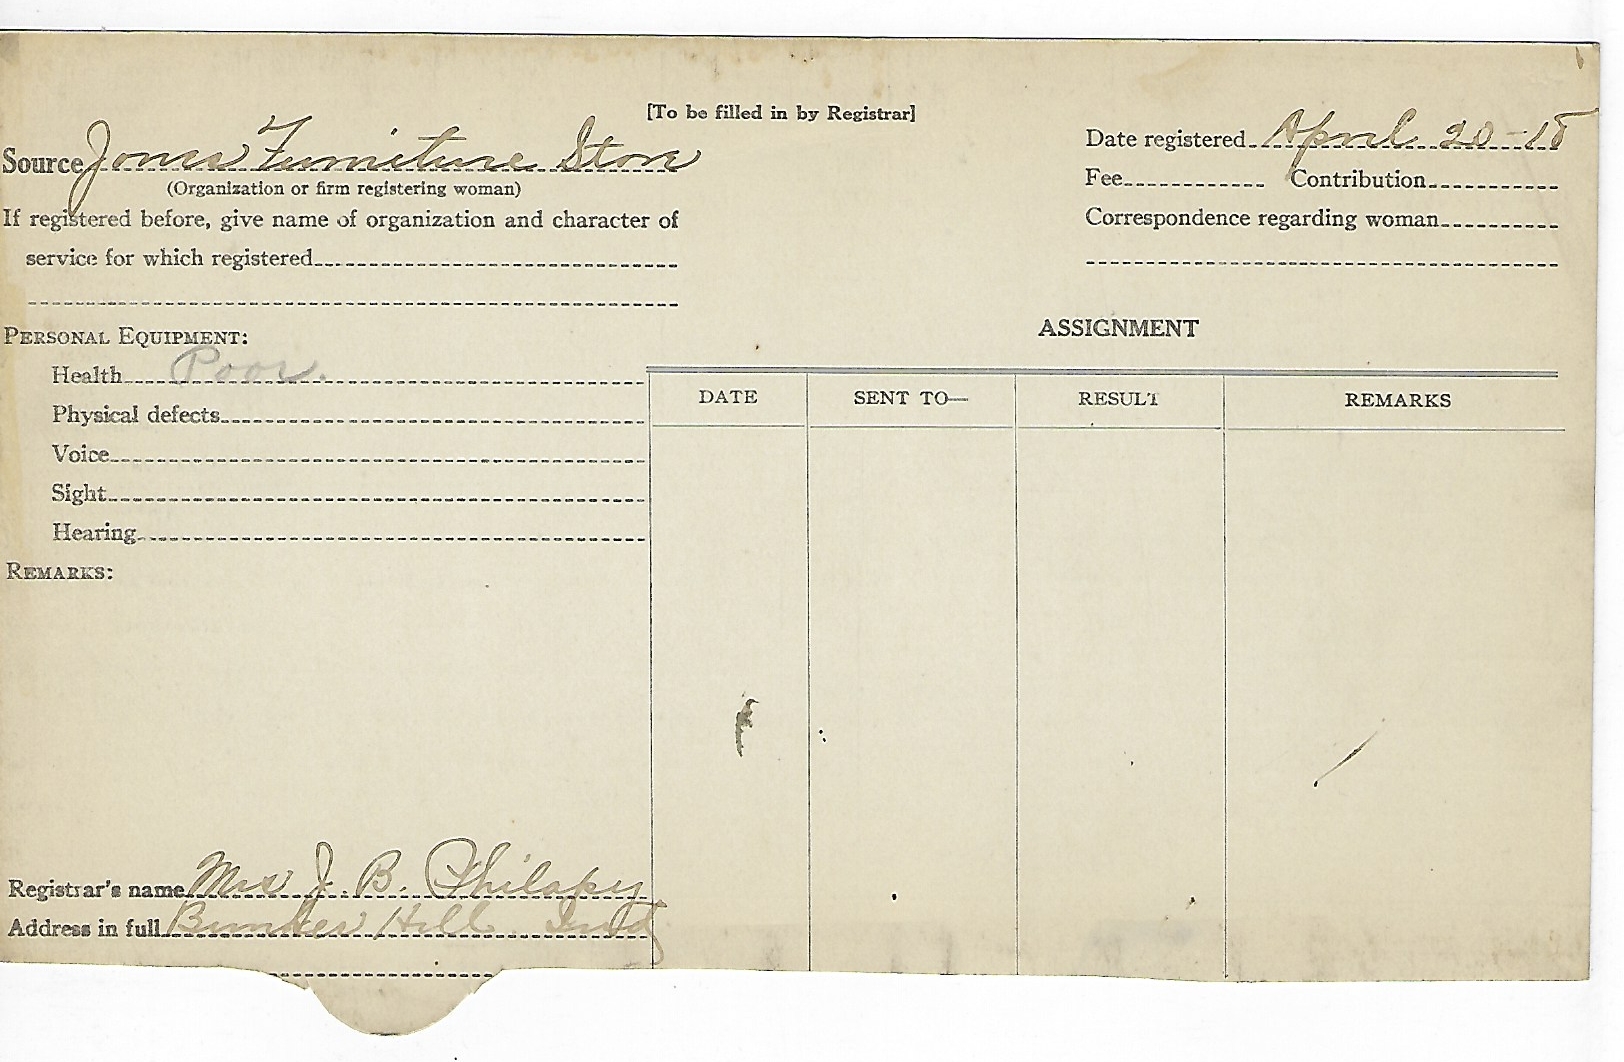 [To be filled in by Registrar]
Source Jones Furniture Store
(Organization or firm registering woman)
If registered before, give name of organization and character of
service for which registered
Date registered April 20-18
Fee Contribution
Correspondence regarding woman
PERSONAL EQUIPMENT:
Health Poor.
Physical defects
Voice
Sight
Hearing
REMARKS:
ASSIGNMENT
DATE SENT TO— RESULT REMARKS
Registrar's name Mrs J. B.
Address in full Bunker Hill Ind